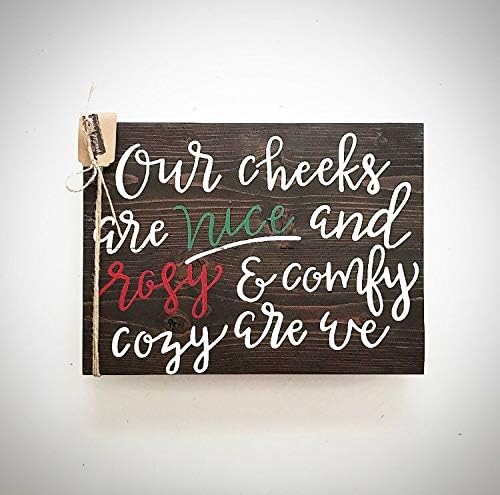 Our cheeks
are nice and
rosy & comfy
cozy are we